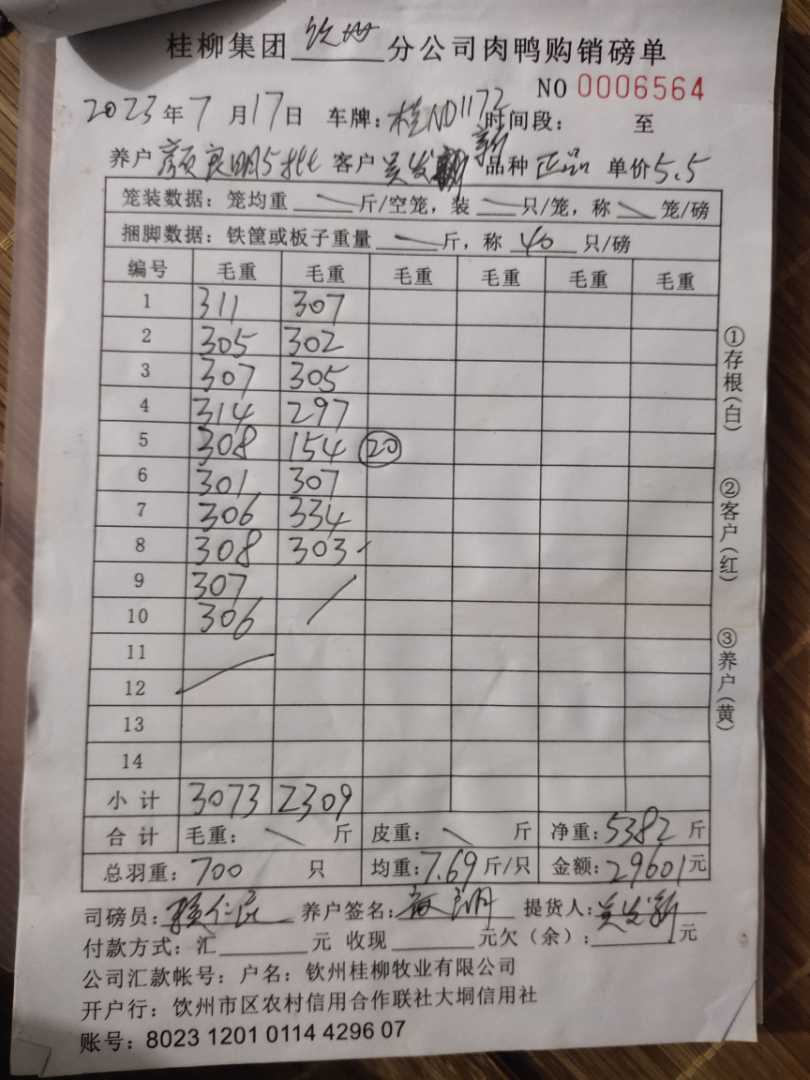 桂柳集团 钦州 分公司肉鸭购销磅单
NO 0006564
2023年7月17日 车牌：桂ND1172 时间段： 至
养户 颜良明5批 客户 吴发新 新 品种 正品 单价5.5
笼装数据：笼均重 斤/空笼，装 只/笼，称 笼/磅
捆脚数据：铁筐或板子重量 斤，称 40 只/磅
编号 毛重 毛重 毛重 毛重 毛重 毛重
1 311 307
2 305 302
3 307 305
4 314 297
5 308 154 20
6 301 307
7 306 334
8 308 303
9 307
10 306
11
12
13
14
小计 3073 2309
合计 毛重： 斤 皮重： 斤 净重：5382 斤
总羽重：700 只 均重：7.69斤/只 金额：29601元
司磅员： 养户签名： 良明 提货人：吴发新
付款方式：汇 元 收现 元欠（余）： 元
公司汇款帐号：户名：钦州桂柳牧业有限公司
开户行：饮州市区农村信用合作联社大垌信用社
账号：8023 1201 0114 4296 07
①存根（白）
②客户（红）
③养户（黄）